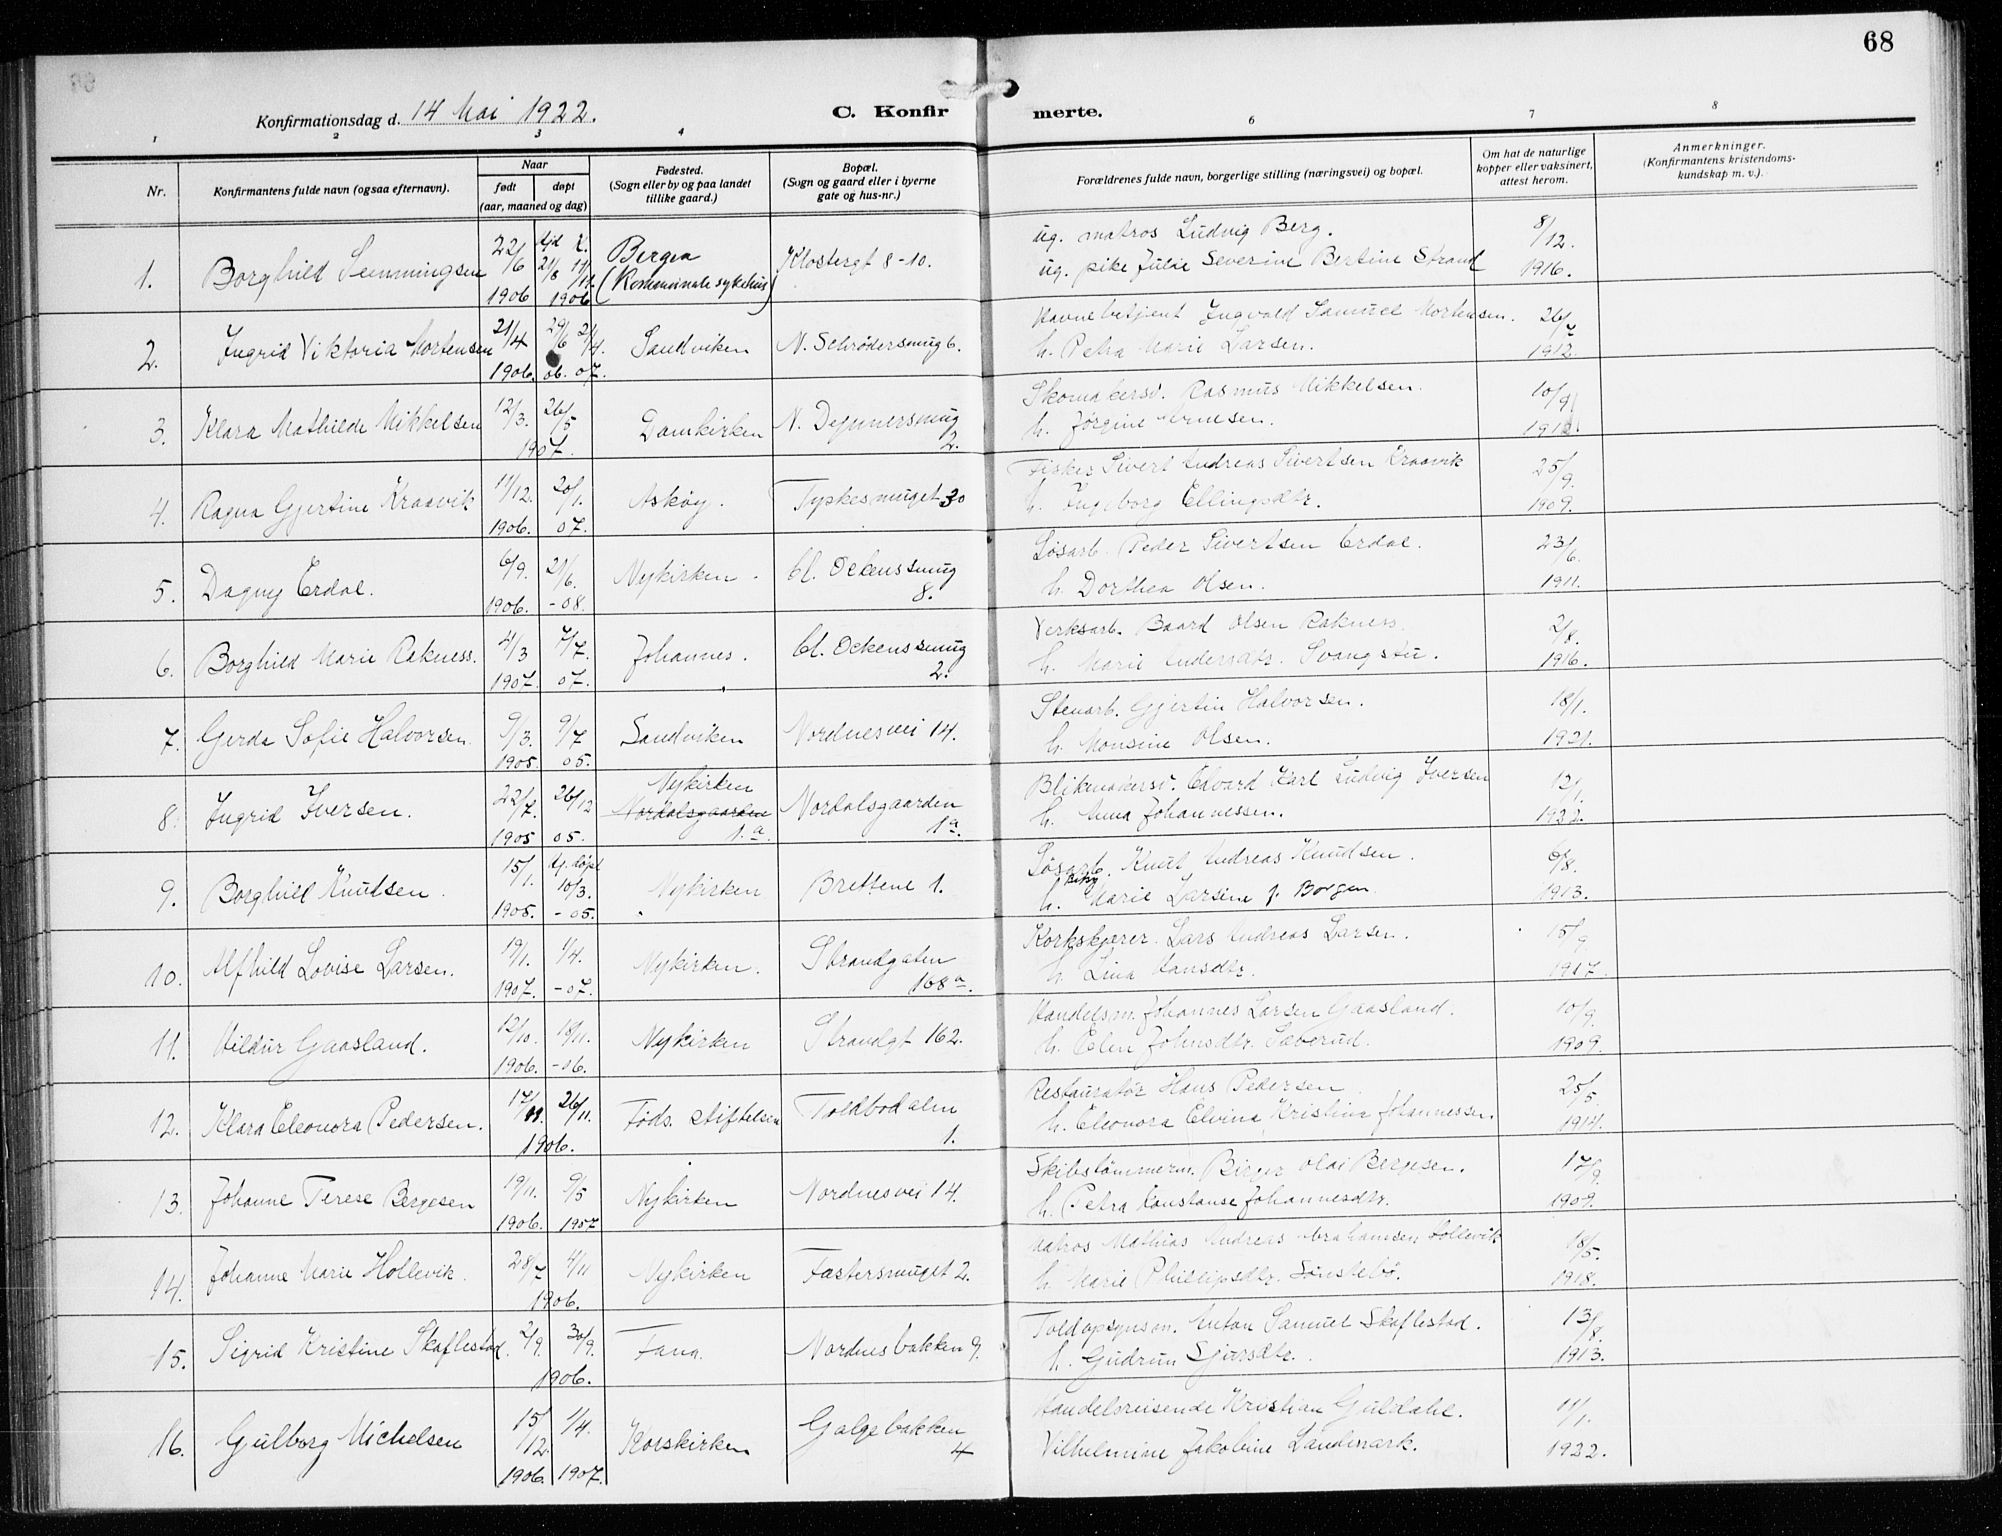 68
Konfirmationsdag d. 14 Mai 1922.
C. Konfirmerte.
1 2 3 4 6 7 8
Nr.
Konfirmantens fulde navn (ogsaa efternavn).
Naar
født døpt
(aar, maaned og dag)
Fødested.
(Sogn eller by og paa landet
tillike gaard.)
Bopæl.
(Sogn og gaard eller i byerne
gate og hus-nr.)
Forældrenes fulde navn, borgerlige stilling (næringsvei) og bopæl.
Om hat de naturlige
kopper eller vaksinert,
attest herom.
Anmerkninger.
(Konfirmantens kristendoms-
kundskap m. v.)
1. Borghild Semmingsen 22/6 1906 21/8 11/11 1906 Bergen (Kommunale sykehus) Klostergt 8-10.
ug. matros Ludvig Berg. 8/12.
ug. pike Julie Severine Bertine Strand 1916.
2. Ingrid Viktoria Mortensen 21/4 1906. 29/6 06. 21/4. 07. Sandviken N. Schrødersmug 6.
Havnebetjent Ingvald Samuel Mortensen. 26/7
h. Petra Marie Larsen. 1912.
3. Klara Mathilde Mikkelsen 12/3. 26/5 1907. Domkirken N. Dynnersmug 2.
Skomakersv. Rasmus Mikkelsen. 10/9
h. Jørgine Arnesen.
4. Ragna Gjertine Kraavik 11/12. 1906. 20/1. 07. Askøy. Tyskesmuget 30
Fisker Sivert Andreas Sivertsen Kraavik 25/9.
h. Ingeborg Ellingsdtr. 1909.
5. Dagny Erdal. 6/9. 1906. 21/6. -08. Nykirken. Cl. Ockenssmug 8.
Løsarb. Peder Sivertsen Erdal. 23/6.
h. Dorthea Olsen. 1911.
6. Borghild Marie Rakness. 4/3 1907. 7/7. 07. Johannes. Cl. Ockenssmug 2.
Verksarb. Baard Olsen Rakness. 2/8.
h. Marie Andersdtr. Svangstu. 1916.
7. Gerda Sofie Halvorsen 9/3. 1905. 9/7 05. Sandviken Nordnesvei 14.
Stenarb. Gjertin Halvorsen. 18/1.
h. Monsine Olsen. 1921.
8. Ingrid Iversen. 22/7. 1905 26/12 05. Nykirken Nordalsgaarden 1.a. Nordalsgaarden 1a.
Blikmakersv. Edvard Karl Ludvig Iversen 12/1.
h. Anna Johannessen. 1922.
9. Borghild Knutsen. 15/1. 1905. hj.døpt 10/3. -05. Nykirken Brettene 1.
Løsarb. Knut Andreas Knudsen. 6/8.
h. Marie Larsine f. Borgen. 1913.
10. Alfhild Lovise Larsen. 19/1. 1907. 1/4. -07. Nykirken. Strandgaten 168a.
Korkskjærer. Lars Andreas Larsen. 15/9
h. Lina Hansdtr. 1917.
11. Hildur Gaasland. 12/10. 1906. 18/11. -06. Nykirken Strandgt 162.
Handelsm. Johannes Larsen Gaasland. 10/9.
h. Elen Johnsdtr. Sæberud. 1909.
12. Klara Eleonora Pedersen. 17/11. 26/11. 1906. Føds. stiftelsen Toldbodalm 1.
Restauratør Hans Pedersen 25/5.
h. Eleonora Elvina Kristina Johannessen. 1914.
13. Johanne Terese Bergesen 19/11. 1906. 9/5 1907 Nykirken Nordnesvei 14.
Skibstømmerm. Birger Olai Bergesen. 17/9.
h. Petra Konstanse Johannesdtr. 1909.
14. Johanne Marie Hollevik. 28/7 4/11 1906. Nykirken Fastersmuget 2.
Matros Mathias Andreas Abrahamsen Hollevik 18/5.
h. Marie Phillipsdtr. Sønstebø. 1918.
15. Sigrid Kristine Skaflestad. 2/9. 30/9. 1906. Fana. Nordnesbakken 9.
Toldopsynsm. Anton Samuel Skaflestad. 13/8.
h. Gudrun Sjursdtr. 1913.
16. Gulborg Michelsen 15/12. 1906. 1/4. 1907. Korskirken Galgebakken 4
Handelsreisende Kristian Guldahl. 11/1.
Vilhelmine Jakobine Landmark. 1922.